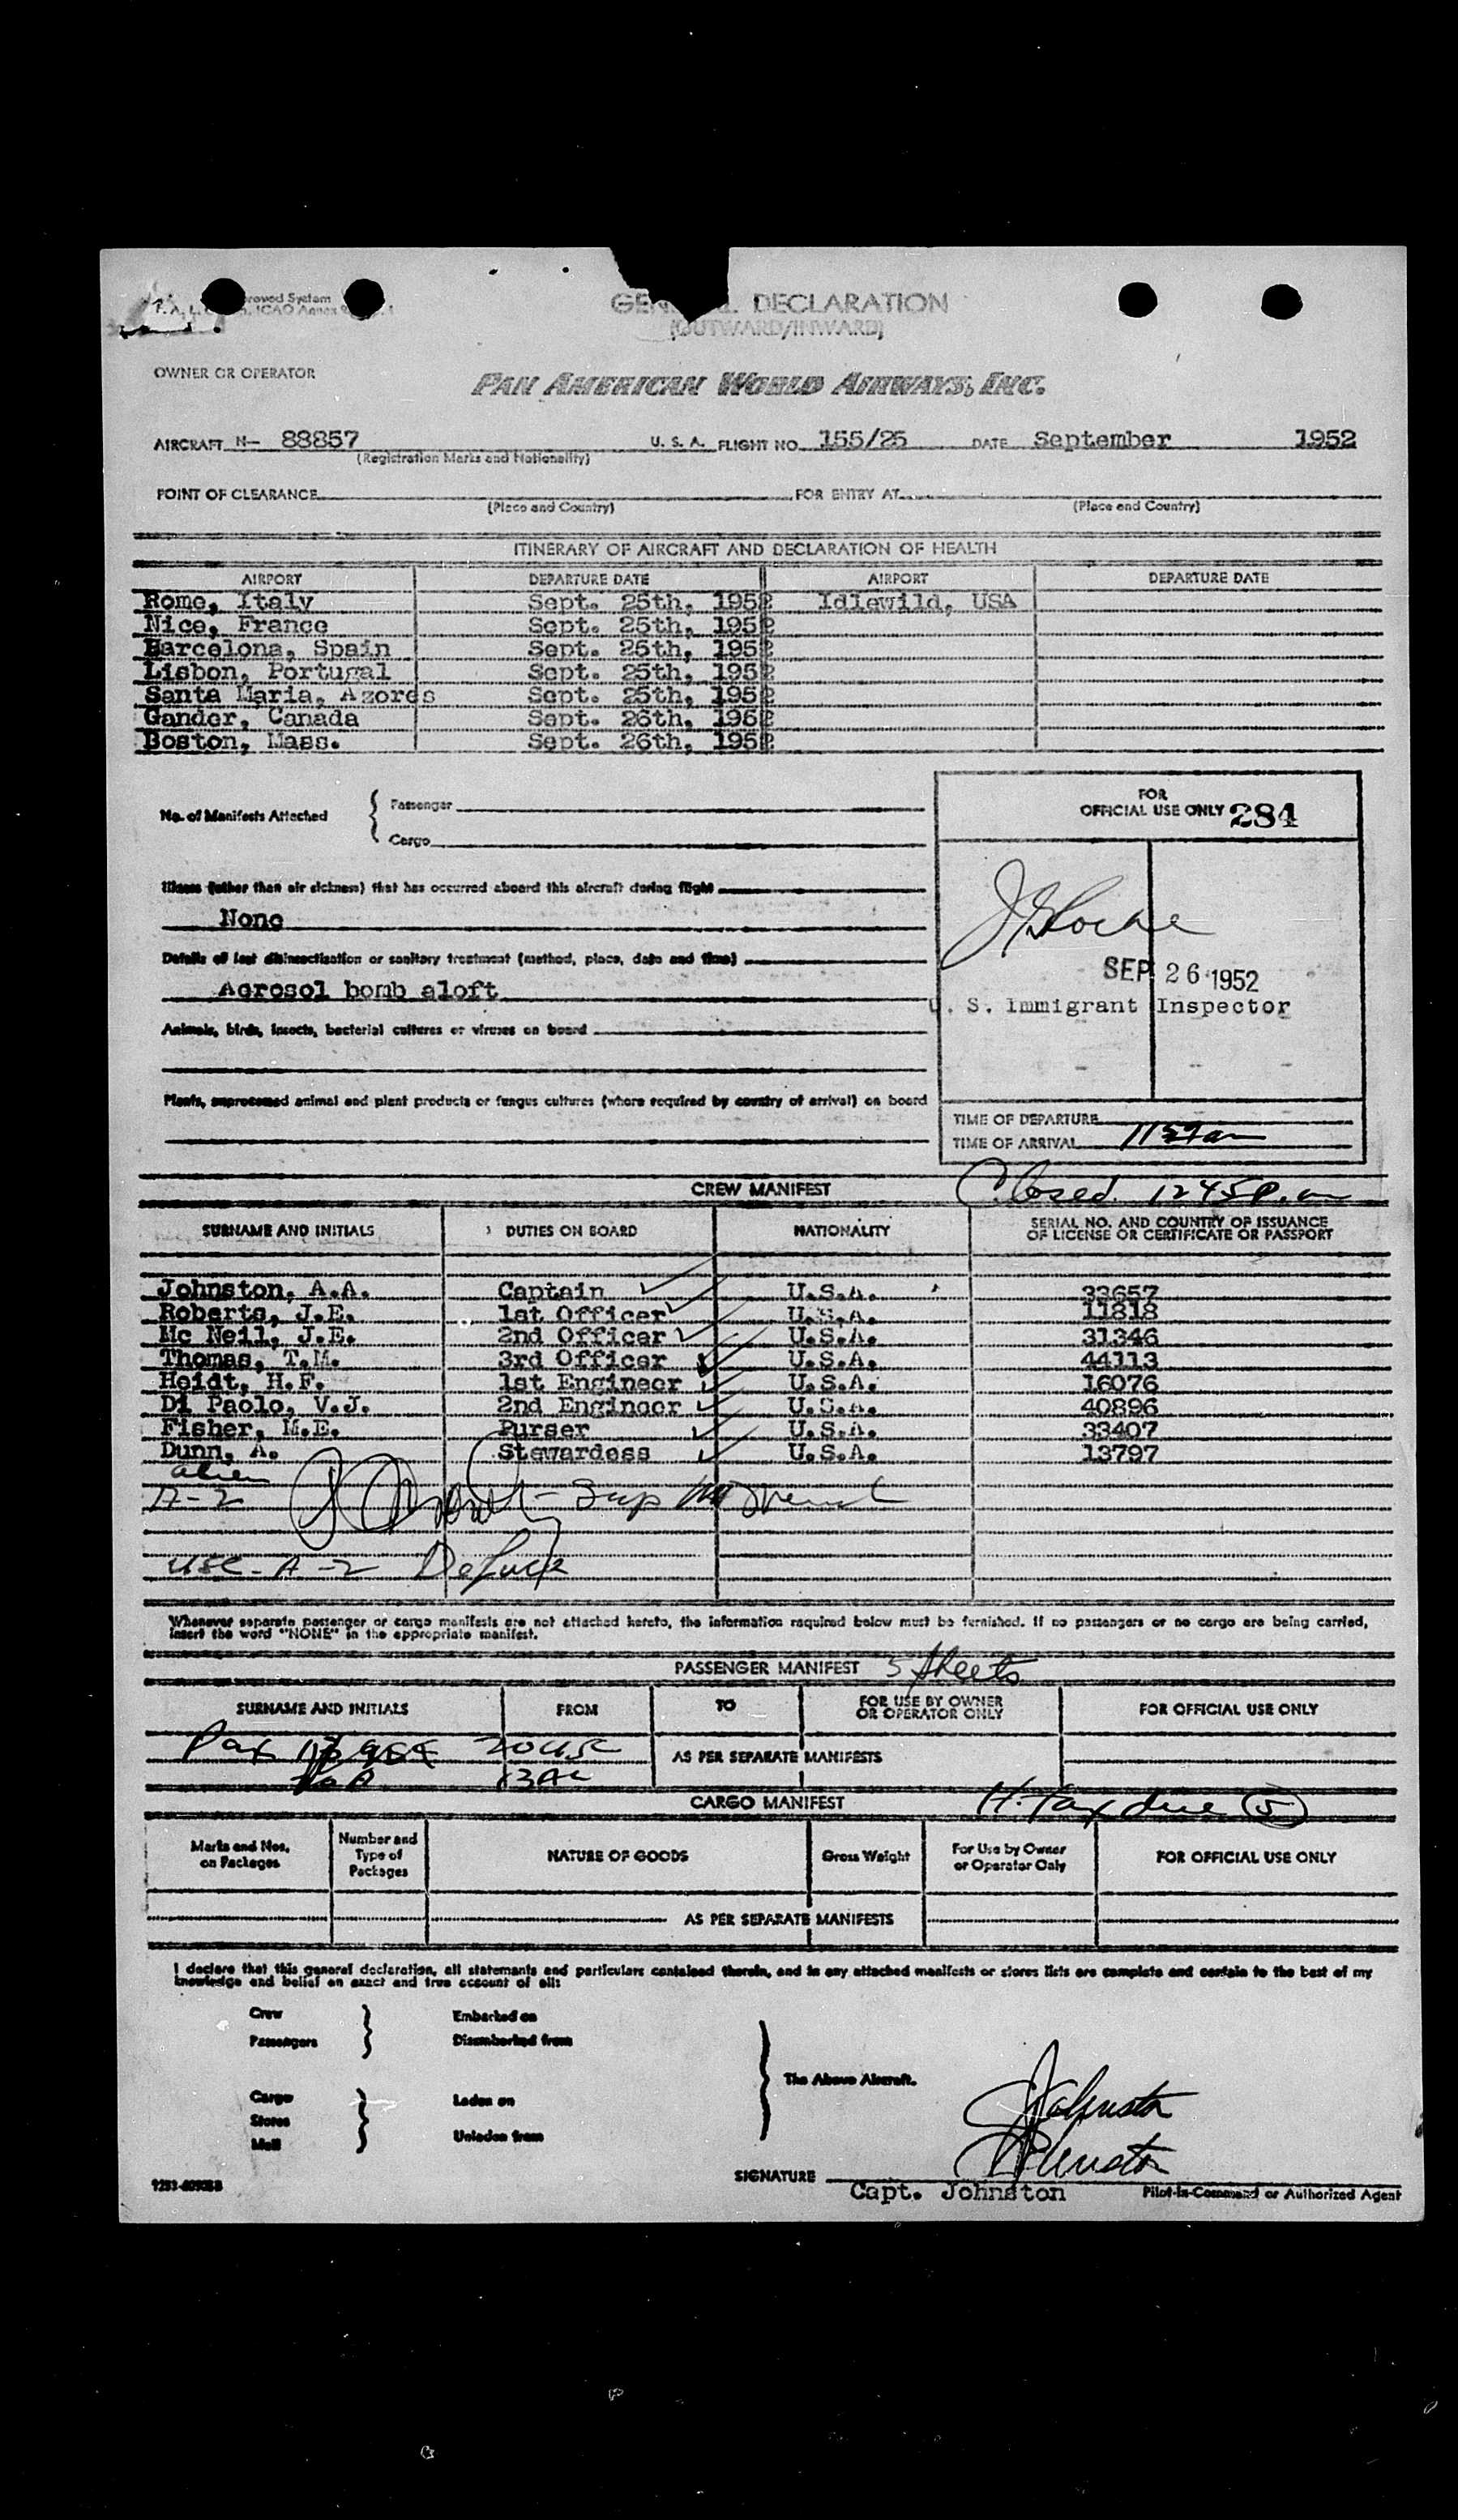 GENERAL DECLARATION
(OUTWARD/INWARD)
OWNER OR OPERATOR
PAN AMERICAN WORLD AIRWAYS, INC.
AIRCRAFT N- 88857 U. S. A. FLIGHT NO. 155/25 DATE September 1952
(Registration Marks and Nationality)
POINT OF CLEARANCE FOR ENTRY AT
(Place and Country) (Place and Country)
ITINERARY OF AIRCRAFT AND DECLARATION OF HEALTH
AIRPORT DEPARTURE DATE AIRPORT DEPARTURE DATE
Rome, Italy Sept. 25th, 1952 Idlewild, USA
Nice, France Sept. 25th, 1952
Barcelona, Spain Sept. 25th, 1952
Lisbon, Portugal Sept. 25th, 1952
Santa Maria, Azores Sept. 25th, 1952
Gander, Canada Sept. 26th, 1952
Boston, Mass. Sept. 26th, 1952
No. of Manifests Attached Passenger
Cargo
FOR
OFFICIAL USE ONLY 284
Illness (other than air sickness) that has occurred aboard this aircraft during flight
None
Details of last disinsectization or sanitary treatment (method, place, date and time)
Aerosol bomb aloft
SEP 26 1952
U. S. Immigrant Inspector
Animals, birds, insects, bacterial cultures or viruses on board
Plants, unprocessed animal and plant products or fungus cultures (where required by country of arrival) on board
TIME OF DEPARTURE
TIME OF ARRIVAL
CREW MANIFEST Closed 1245 P.m
SURNAME AND INITIALS DUTIES ON BOARD NATIONALITY SERIAL NO. AND COUNTRY OF ISSUANCE
OF LICENSE OR CERTIFICATE OR PASSPORT
Johnston, A.A. Captain U.S.A. 33657
Roberts, J.E. 1st Officer U.S.A. 11818
Mc Neil, J.E. 2nd Officer U.S.A. 31346
Thomas, T.M. 3rd Officer U.S.A. 44113
Heidt, H.F. 1st Engineer U.S.A. 16076
Di Paolo, V.J. 2nd Engineer U.S.A. 40896
Fisher, M.E. Purser U.S.A. 33407
Dunn, A. Stewardess U.S.A. 13797
alien
A-2
USC-A-2
Whenever separate passenger or cargo manifests are not attached hereto, the information required below must be furnished. If no passengers or no cargo are being carried,
insert the word "NONE" in the appropriate manifest.
PASSENGER MANIFEST 5 sheets
SURNAME AND INITIALS FROM TO FOR USE BY OWNER
OR OPERATOR ONLY FOR OFFICIAL USE ONLY
Pax 20 USC AS PER SEPARATE MANIFESTS
CARGO MANIFEST H. Tax due (5)
Marks and Nos.
on Packages Number and
Type of
Packages NATURE OF GOODS Gross Weight For Use by Owner
or Operator Only FOR OFFICIAL USE ONLY
AS PER SEPARATE MANIFESTS
I declare that this general declaration, all statements and particulars contained therein, and in any attached manifests or stores lists are complete and contain to the best of my
knowledge and belief an exact and true account of all:
Crew Embarked on
Passengers Disembarked from
The Above Aircraft.
Cargo Laden on
Stores
Mail Unladen from
Johnston
Johnston
SIGNATURE
Capt. Johnston Pilot-in-Command or Authorized Agent